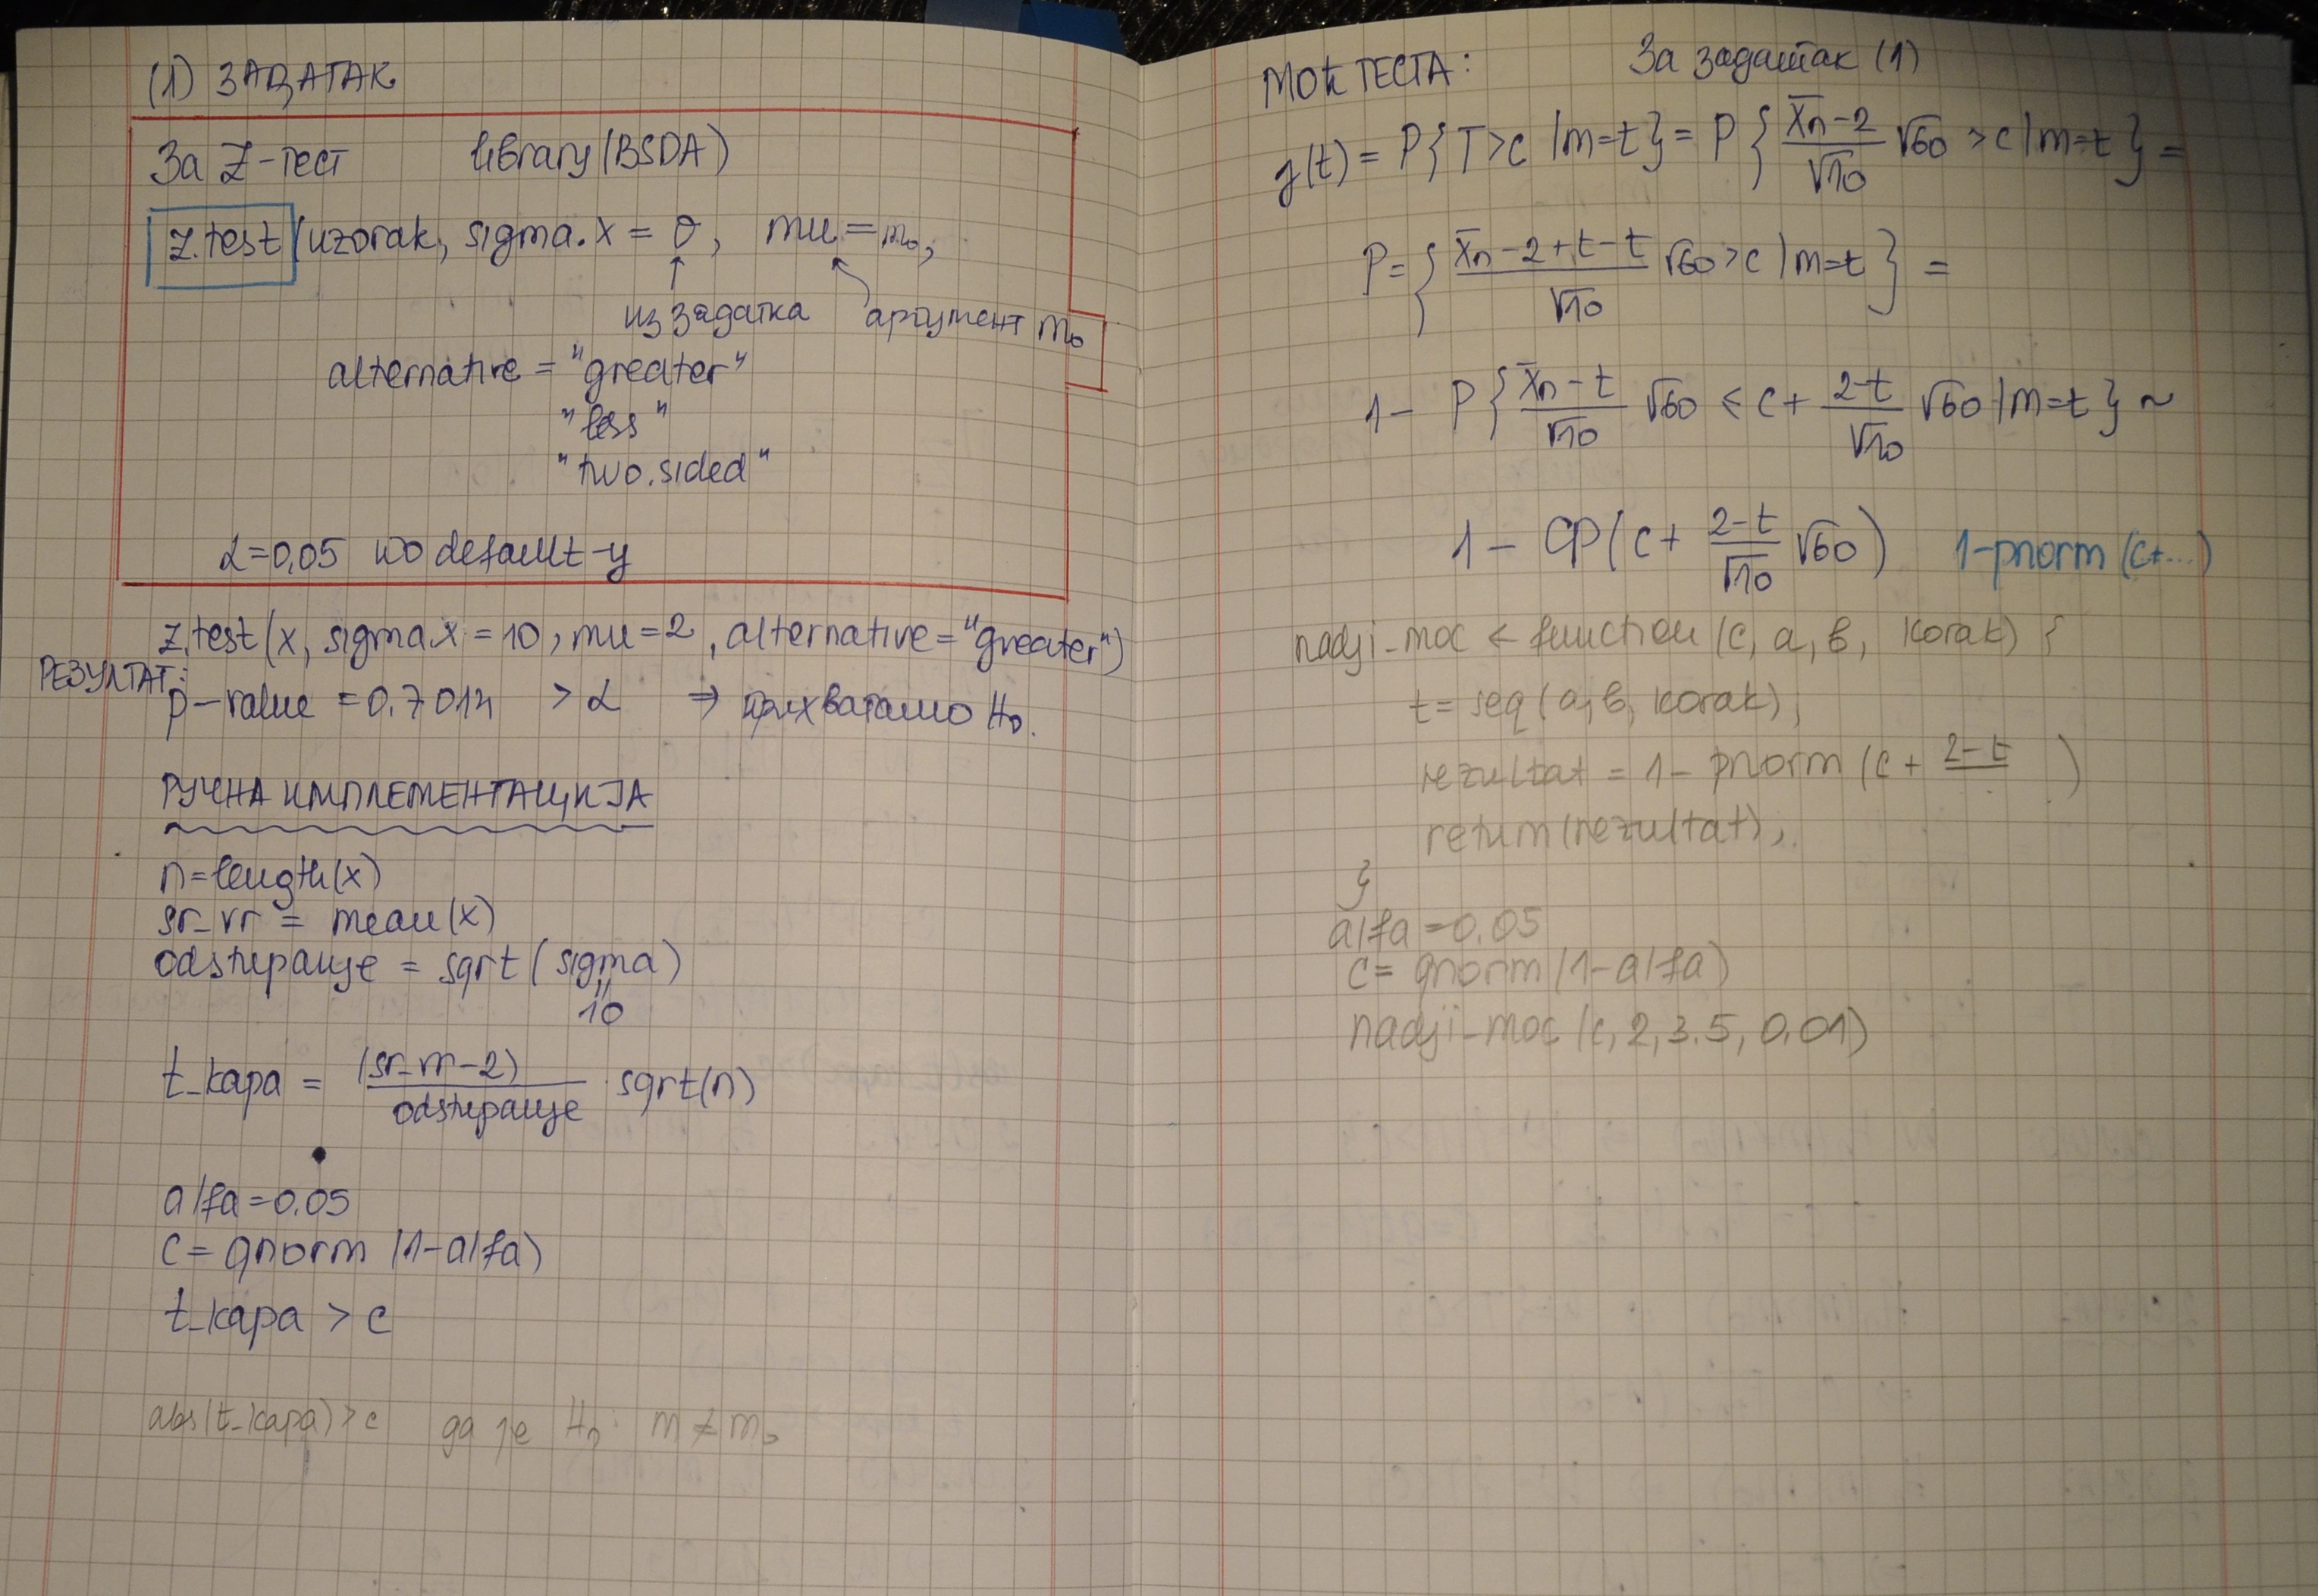 (1) ЗАДАТАК
За Z-тест library(BSDA)
z.test(uzorak, sigma.x = σ, mu = m₀,
из задатка аргумент m₀
alternative = "greater"
"less"
"two.sided"
α=0,05 по default-у
z.test(x, sigma.x = 10, mu=2, alternative="greater")
РЕЗУЛТАТ:
p-value = 0.7014 > α ⇒ прихватамо H₀.
РУЧНА ИМПЛЕМЕНТАЦИЈА
n=length(x)
sr_vr = mean(x)
odstupanje = sqrt(sigma)
"
10
t_kapa = (sr_vr-2)/odstupanje · sqrt(n)
alfa=0.05
c= qnorm (1-alfa)
t_kapa > c
abs(t_kapa)>c да је H₁: m ≠ m₀
МОЋ ТЕСТА: За задатак (1)
γ(t) = P{T>c |m=t} = P{ (x̄n-2)/√10 √60 >c|m=t } =
P={ (x̄n-2+t-t)/√10 √60>c|m=t } =
1- P{ (x̄n-t)/√10 √60 ≤ c+ (2-t)/√10 √60|m=t} ~
1- Φ(c+ (2-t)/√10 √60) 1-pnorm(c+...)
nadji_moc ← function (c, a, b, korak) {
t= seq(a,b, korak);
rezultat = 1- pnorm (c+ 2-t )
return(rezultat);
}
alfa=0.05
c= qnorm(1-alfa)
nadji_moc (c,2,3.5, 0.01)